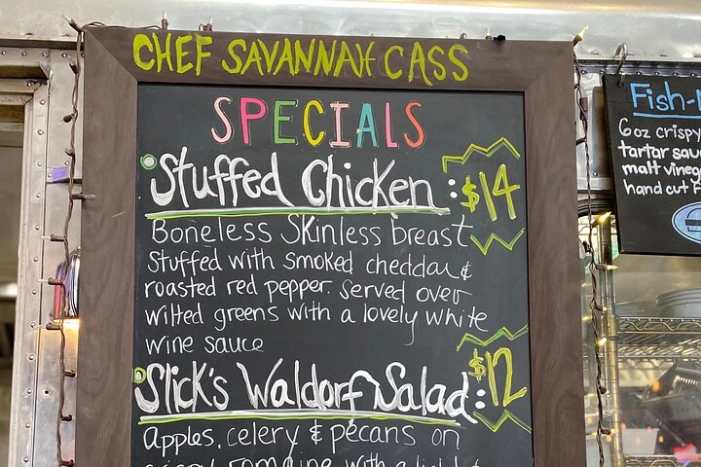 CHEF SAVANNAH CASS
SPECIALS
Stuffed Chicken: $14
Boneless Skinless breast
Stuffed with smoked cheddar &
roasted red pepper. served over
wilted greens with a lovely white
wine sauce
Slick's Waldorf Salad: $12
Apples, celery & pecans on
romaine with a light
Fish-
6oz crispy
tartar
malt
hand cut